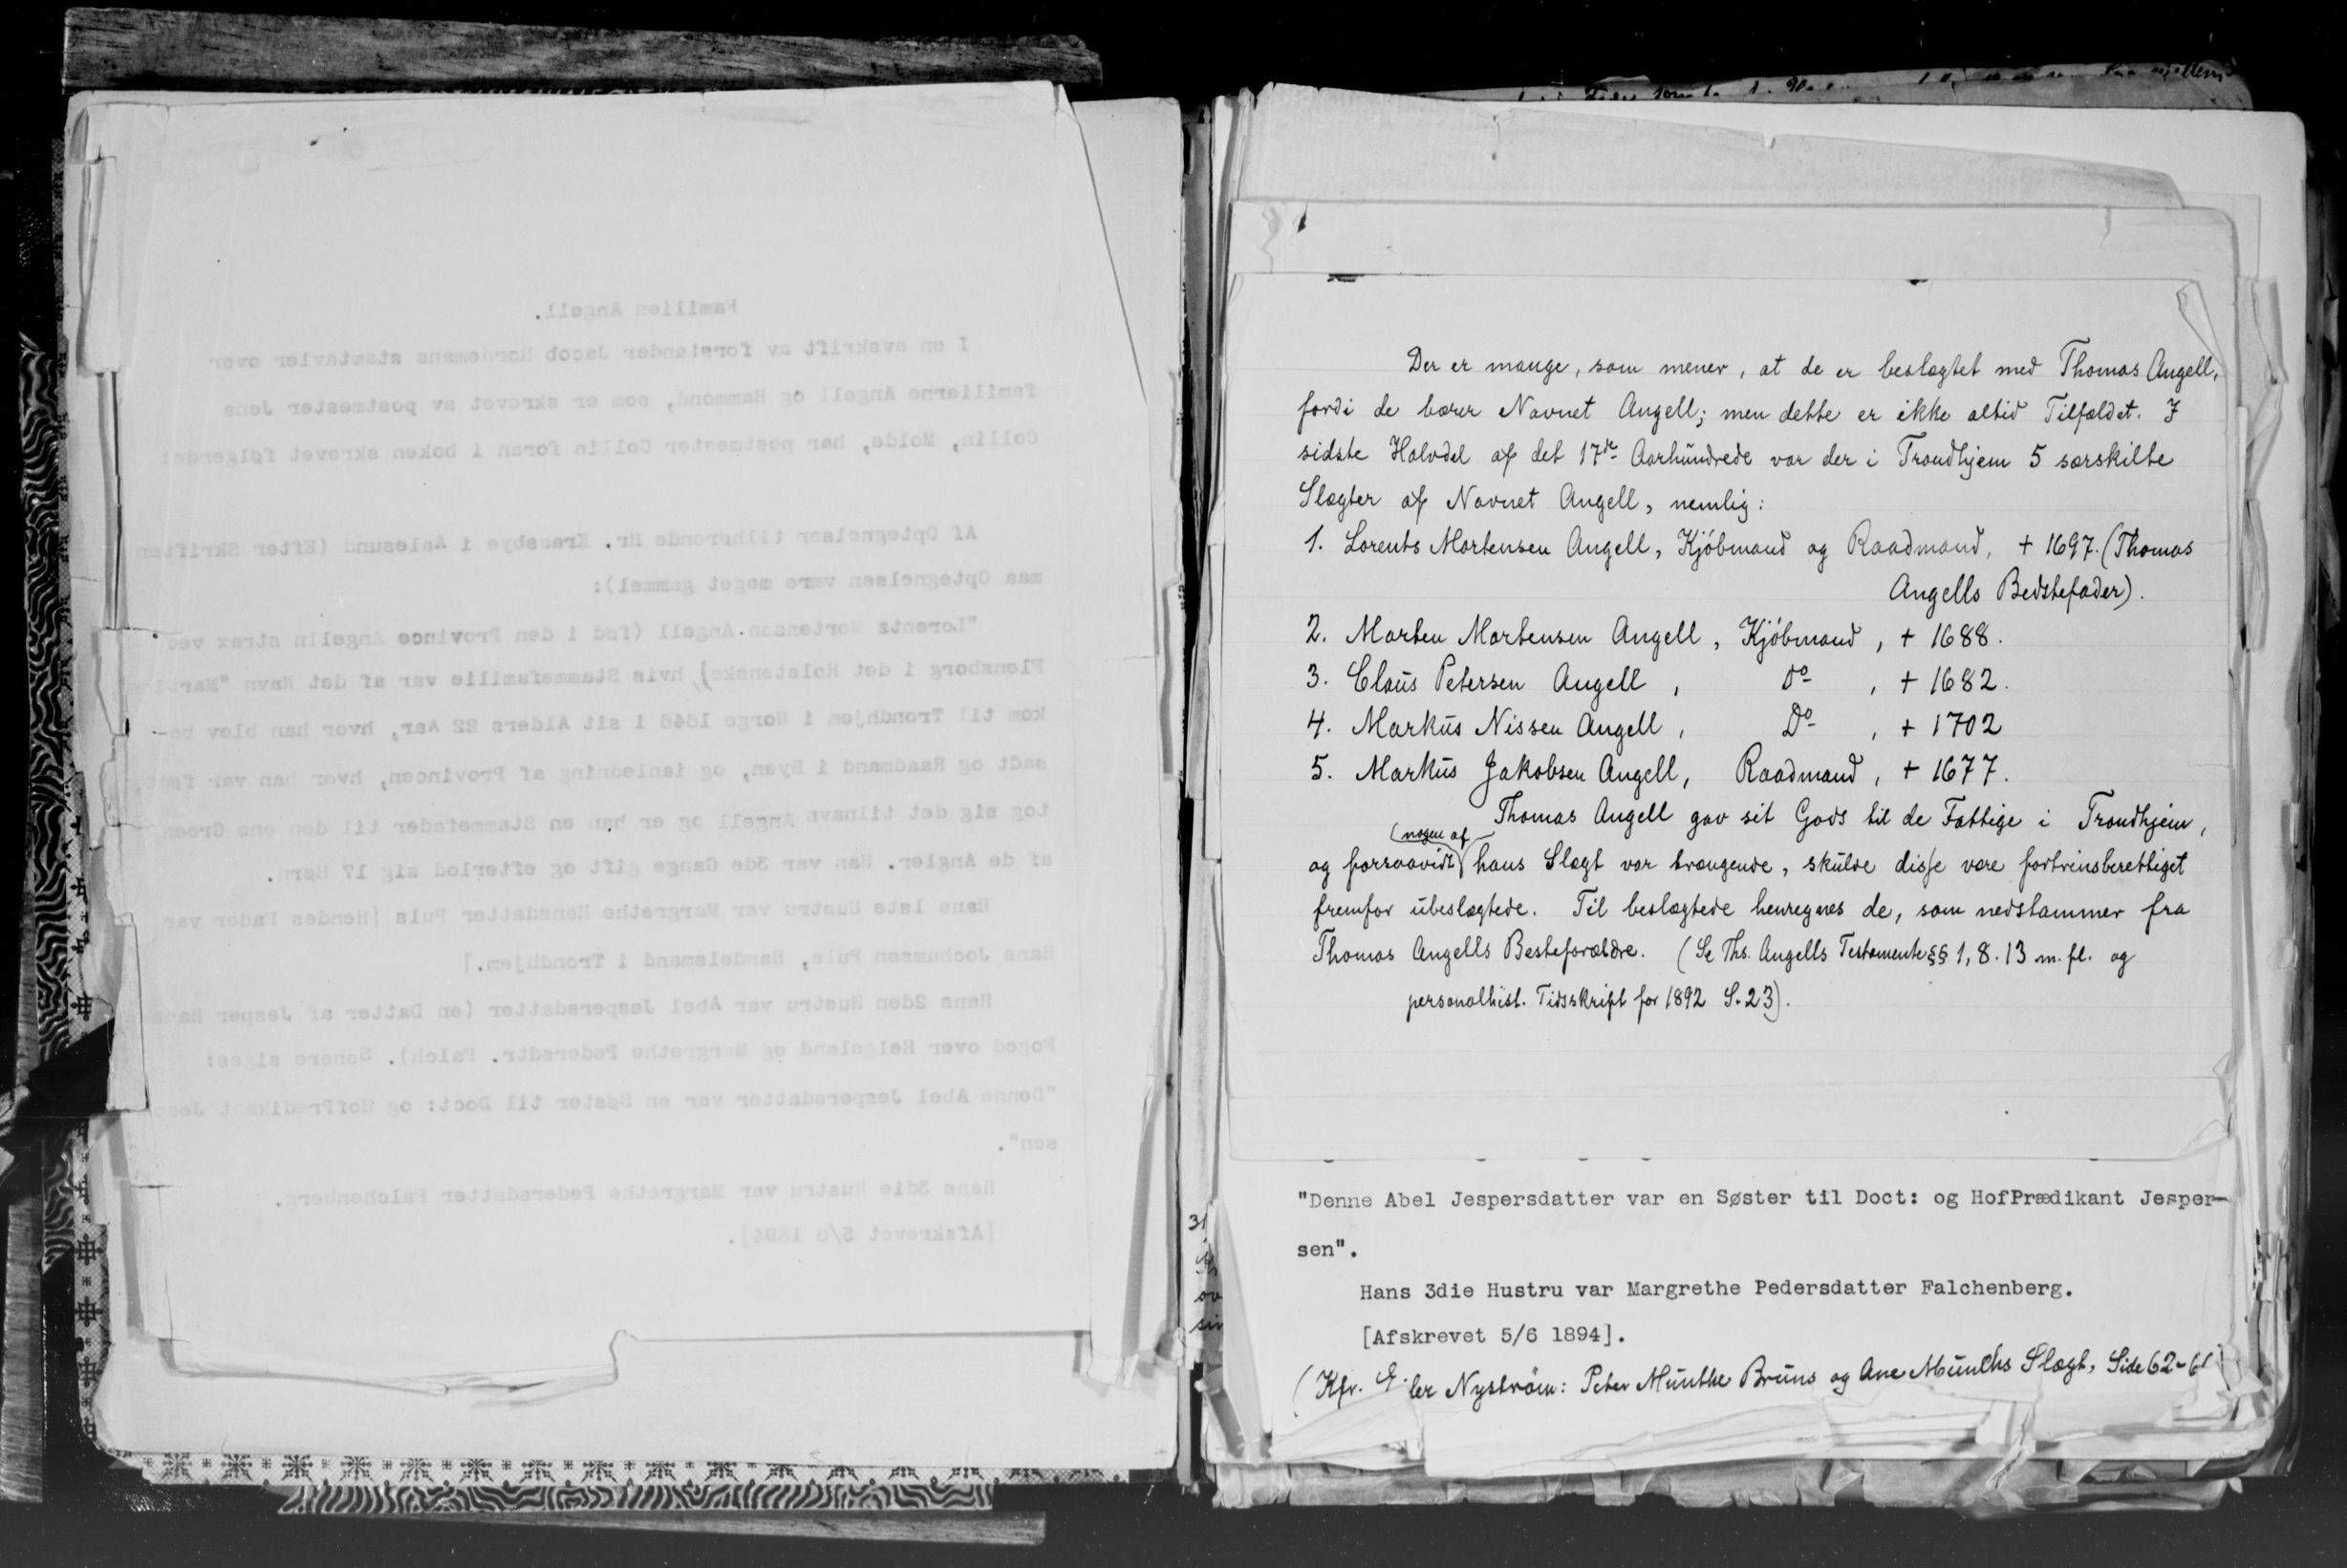 Familien Angell.
I en avskrift av forstander Jacob Hornemans stamtavler over
familierne Angell og Hammond, som er skrevet av postmester Jens
Collin, Molde, har postmester Collin foran i boken skrevet følgende:
Af Optegnelser tilhørende Hr. Kraasbye i Aalesund (Efter Skriften
maa Optegnelsen være meget gammel):
"Lorentz Mortensen Angell (fød i den Province Angelln strax ved
Flensborg i det Holstenske) hvis Stammefamilie var af det Navn "Martins"
kom til Trondhjem i Norge 1646 i sit Alders 22 Aar, hvor han blev bo-
sadt og Raadmand i Byen, og ianledning af Provincen, hvor han var født,
tog sig det tilnavn Angell og er han en Stammefader til den ene Green
af de Angler. Han var 3de Gange gift og efterlod sig 17 Børn.
Hans 1ste Hustru var Margrethe Hansdatter Puls [Hendes Fader var
Hans Jochumsen Puls, Handelsmand i Trondhjem.]
Hans 2den Hustru var Abel Jespersdatter (en Datter af Jesper
Foged over Helgeland og Margrethe Pedersdtr. Falch). Senere siges:
"Denne Abel Jespersdatter var en Søster til Doct: og HofPrædikant
sen".
Hans 3die Hustru var Margrethe Pedersdatter Falchenberg.
[Afskrevet 5/6 1894].
Der er mange, som mener, at de er beslægtet med Thomas Angell,
fordi de bærer Navnet Angell; men dette er ikke altid Tilfældet. I
sidste Halvdel af det 17de Aarhundrede var der i Trondhjem 5 særskilte
Slægter af Navnet Angell, nemlig:
1. Lorents Mortensen Angell, Kjøbmand og Raadmand, + 1697. (Thomas
Angells Bedstefader).
2. Morten Mortensen Angell, Kjøbmand, + 1688.
3. Claus Petersen Angell, do, + 1682.
4. Markus Nissen Angell, Do, + 1702
5. Markus Jakobsen Angell, Raadmand, + 1677.
Thomas Angell gav sit Gods til de Fattige i Trondhjem,
(nogen af
og forsaavidt hans Slægt var trængende, skulde disse være fortrinsberettiget
fremfor ubeslægtede. Til beslægtede henregnes de, som nedstammer fra
Thomas Angells Besteforældre. (Se Ths. Angells Testamente §§ 1, 8. 13 m. fl. og
personalhist. Tidsskrift for 1892 S. 23).
"Denne Abel Jespersdatter var en Søster til Doct: og HofPrædikant Jesper-
sen".
Hans 3die Hustru var Margrethe Pedersdatter Falchenberg.
[Afskrevet 5/6 1894].
(Kfr. Nyström: Peter Munthe Bruns og Ane Munchs Slægt, Side 62-